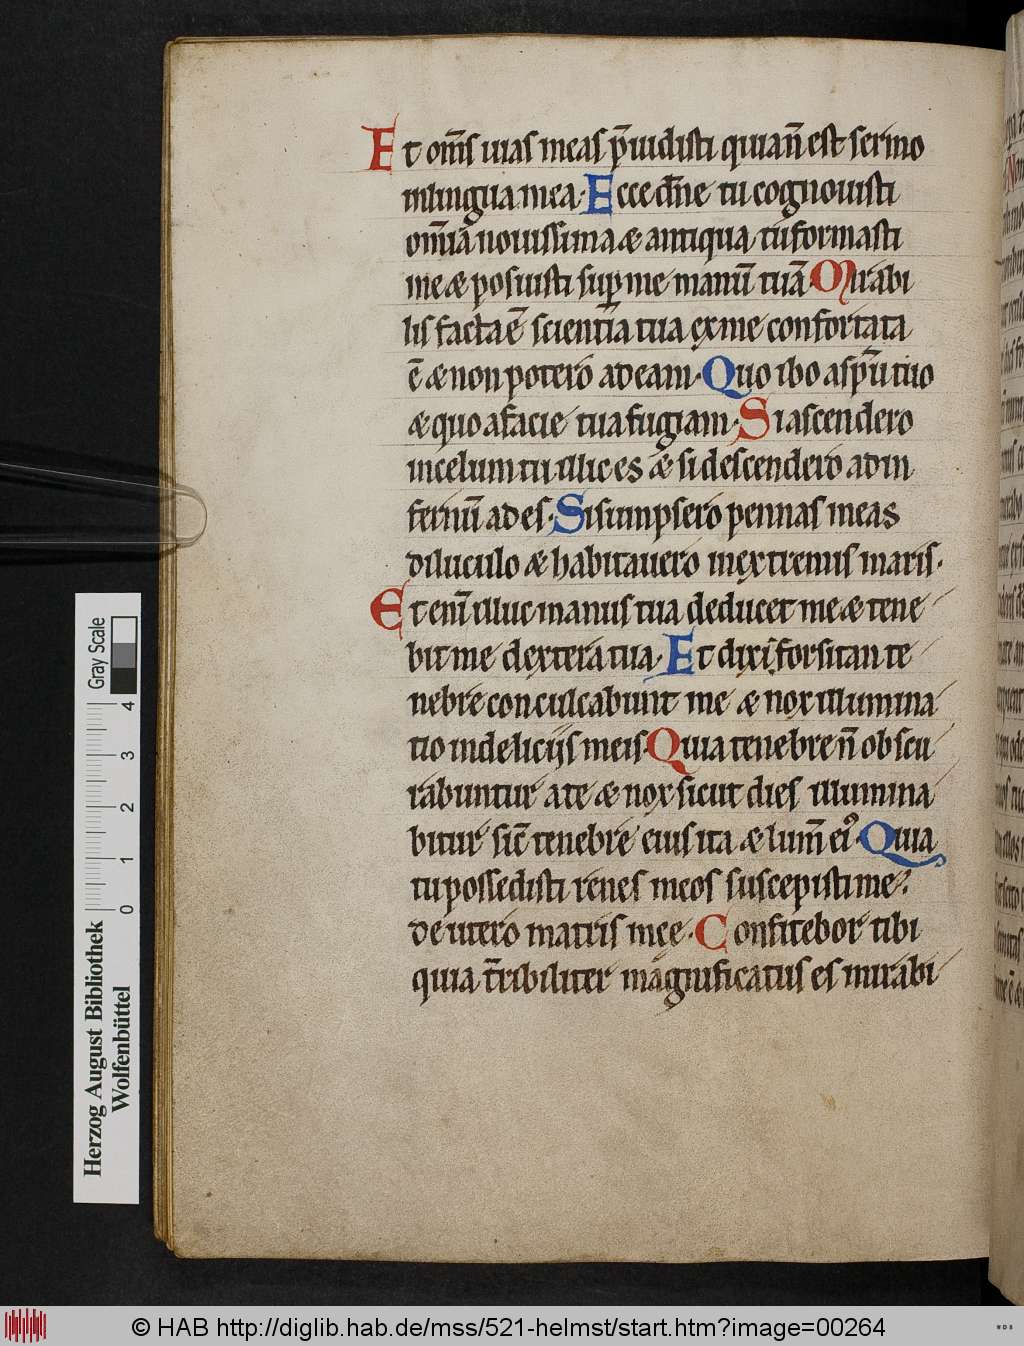 Et om̅s uias meas p̅uidisti quian̅ est sermo
inlingua mea· Ecce dn̅e tu cognouisti
om̅ia nouissima & antiqua, tu formasti
me & posuisti sup me manū tuā· Mirabi
lis facta ē scientia tua ex me confortata
ē & non potero ad eam· Quo ibo a sp̅u tuo
& quo a facie tua fugiam· Si ascendero
in celum tu illic es & si descendero ad in
fernū ades· Si sumpsero pennas meas
diluculo & habitauero in extremis maris·
Et eni̅ illuc manus tua deducet me & tene
bit me dextera tua· Et dixi forsitan te
nebre conculcabunt me & nox illumina
tio in deliciis meis· Quia tenebre n̅ obscu
rabuntur a te & nox sicut dies illumina
bitur sic̅ tenebre eius ita & lum̅ ei⁹· Quia
tu possedisti renes meos suscepisti me
de utero matris mee· Confitebor tibi
quia t̅ribiliter magnificatus es mirabi
Herzog August Bibliothek
Wolfenbüttel
0 1 2 3 4
Gray Scale
© HAB http://diglib.hab.de/mss/521-helmst/start.htm?image=00264